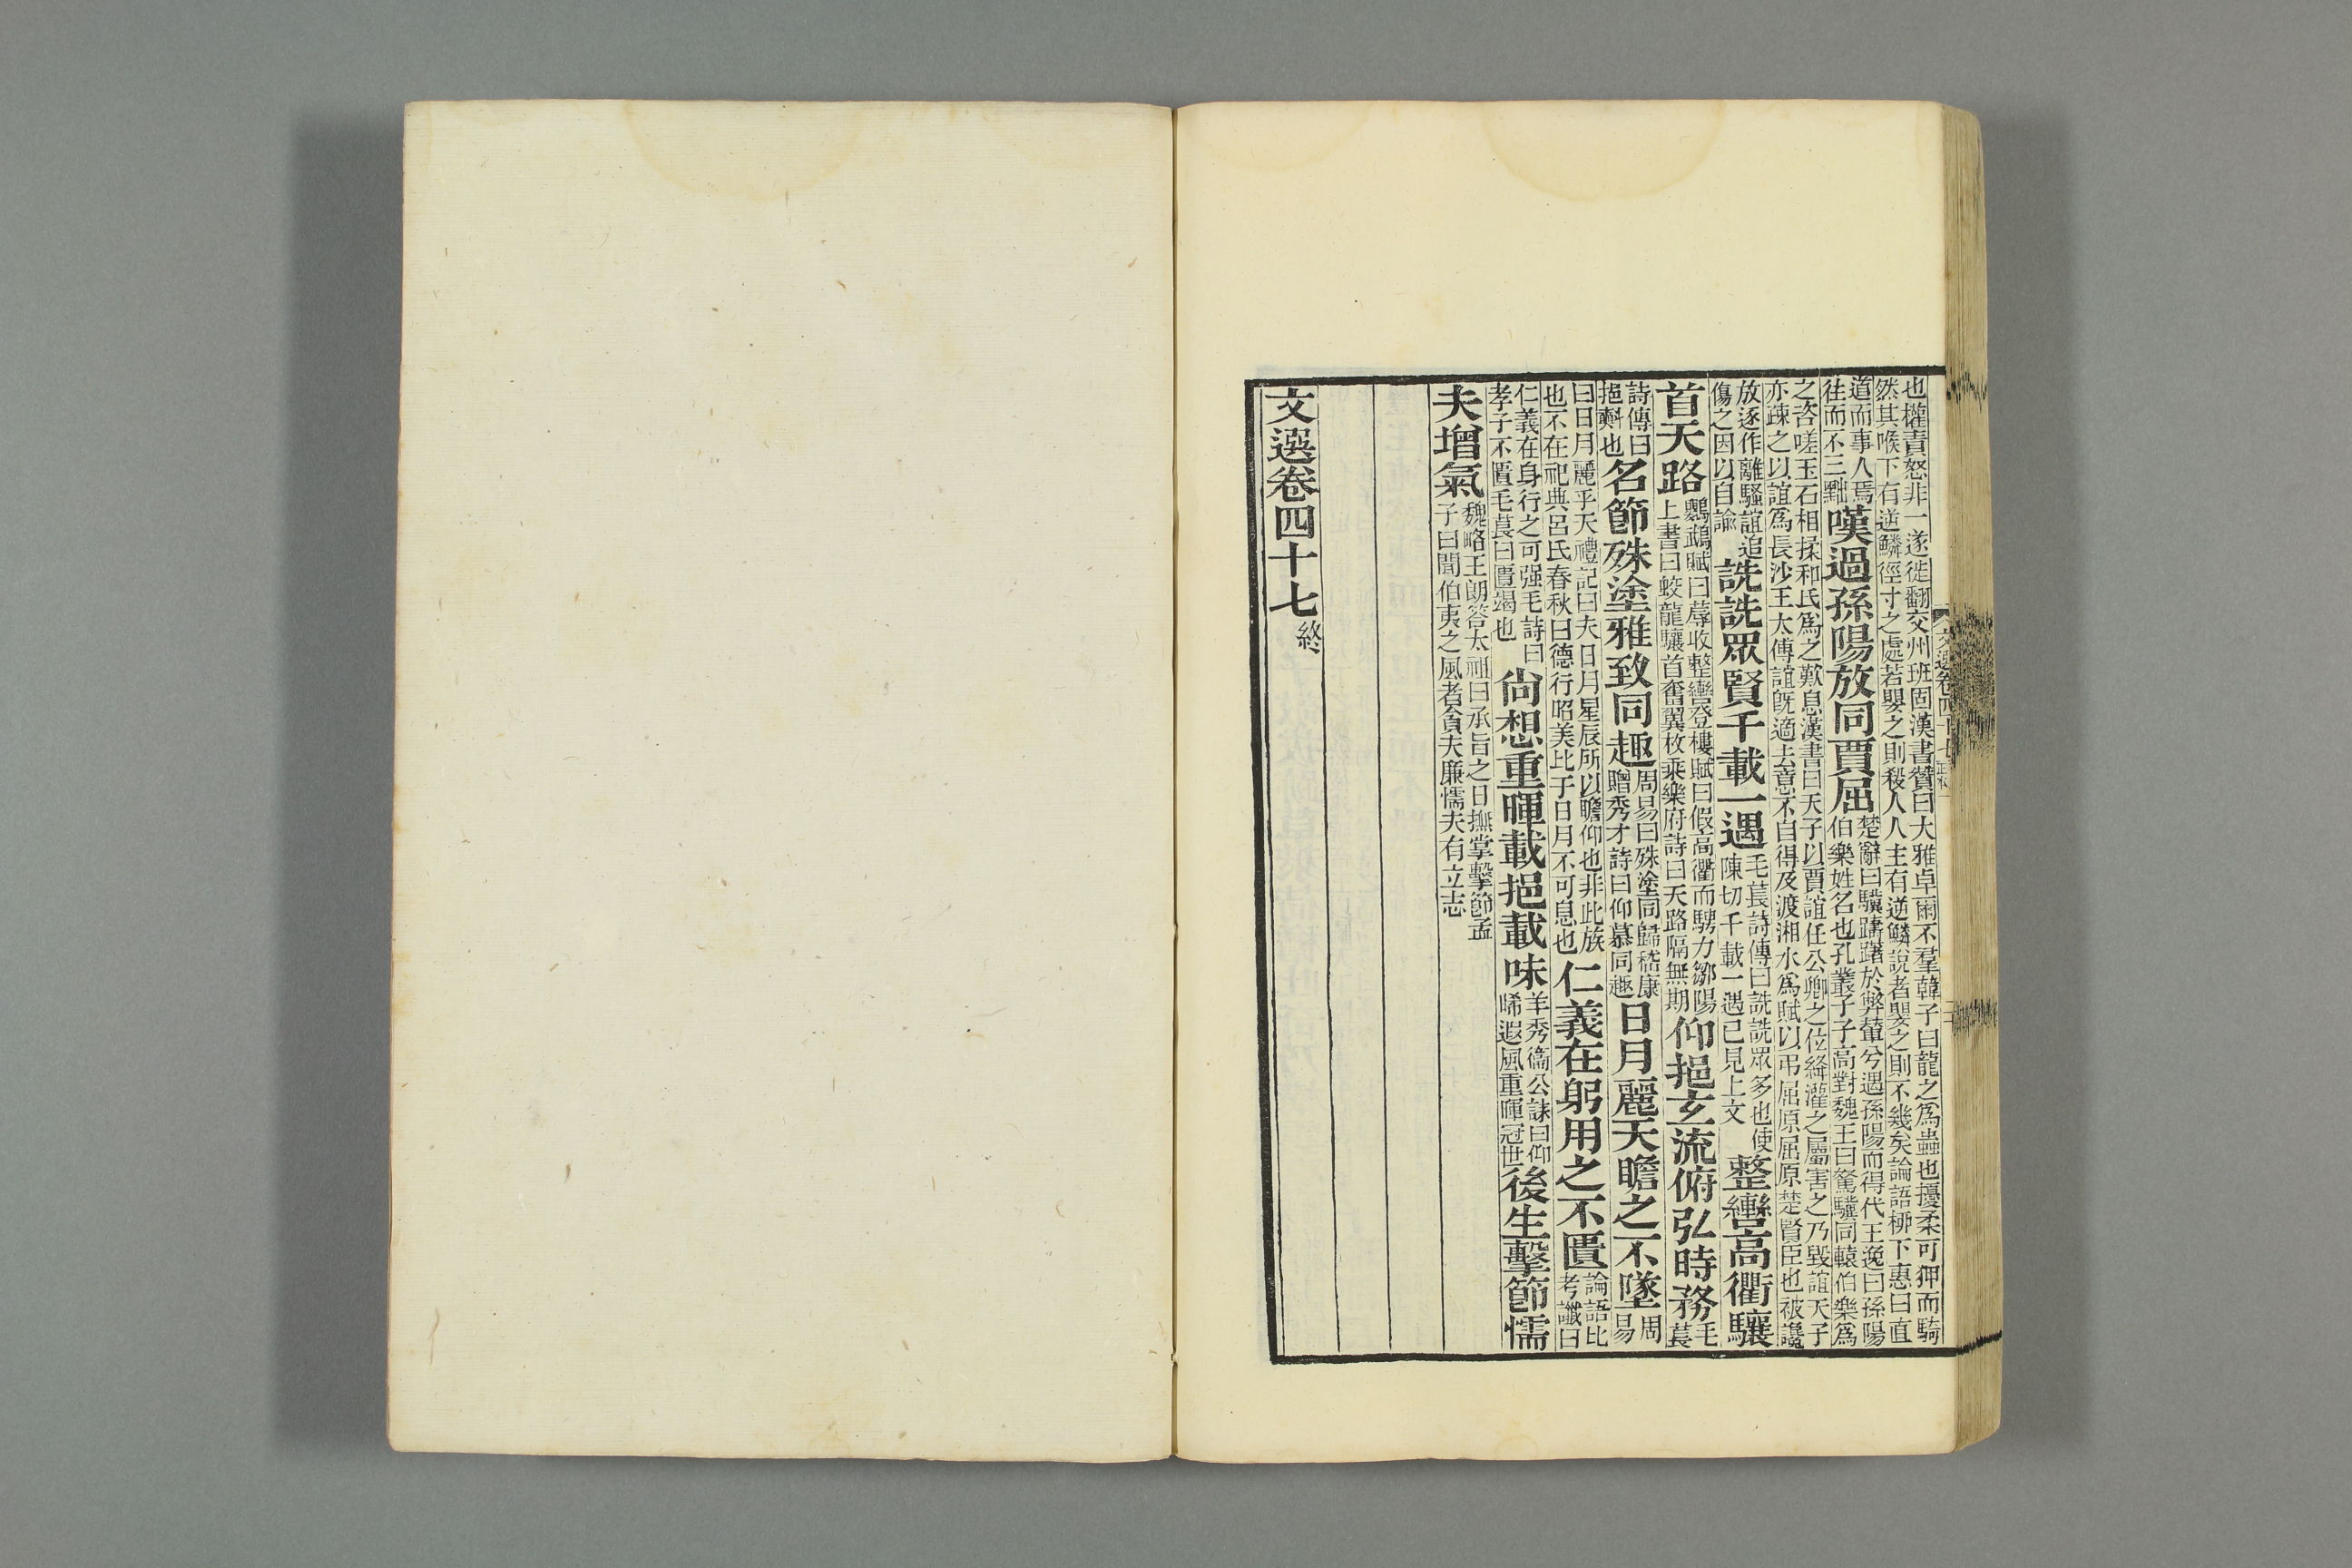 也權責怒非一遂徙翻交州班固漢書贊曰大雅卓爾不羣韓子曰龍之爲蟲也擾柔可狎而騎
然其喉下有逆鱗徑寸之處若嬰之則殺人人主有逆鱗說者嬰之則不幾矣論語栁下惠曰直
道而事人焉
徃而不三黜
嘆過孫陽放同賈屈
楚辭曰驥躊躇於弊輂兮遇孫陽而得代王逸曰孫陽
伯樂姓名也孔叢子子高對魏王曰駑驥同轅伯樂爲
之咨嗟玉石相揉和氏爲之歎息漢書曰天子以賈誼任公卿之位絳灌之屬害之乃毀誼天子
亦疎之以誼爲長沙王太傅誼旣適去意不自得及渡湘水爲賦以弔屈原屈原楚賢臣也被讒
放逐作離騷誼追
傷之因以自諭
詵詵眾賢千載一遇
毛萇詩傳曰詵詵眾多也使
陳切千載一遇已見上文
整轡高衢驤
首天路
鸚鵡賦曰蓐收整轡登樓賦曰假高衢而騁力鄒陽
上書曰蛟龍驤首奮翼枚乘樂府詩曰天路隔無期
仰挹玄流俯弘時務
毛
萇
詩傳曰
挹㪺也
名節殊塗雅致同趣
周易曰殊塗同歸嵇康
贈秀才詩曰仰慕同趣
日月麗天瞻之不墜
周
易
曰日月麗乎天禮記曰夫日月星辰所以瞻仰也非此族
也不在祀典呂氏春秋曰德行昭美比于日月不可息也
仁義在躬用之不匱
論語比
考讖曰
仁義在身行之可强毛詩曰
孝子不匱毛萇曰匱竭也
尚想重暉載挹載味
羊秀衞公誄曰仰
睎遐風重暉冠世
後生擊節懦
夫增氣
魏略王朗答太祖曰承旨之日撫掌擊節孟
子曰聞伯夷之風者貪夫廉懦夫有立志
文選卷四十七終
文選卷四十七